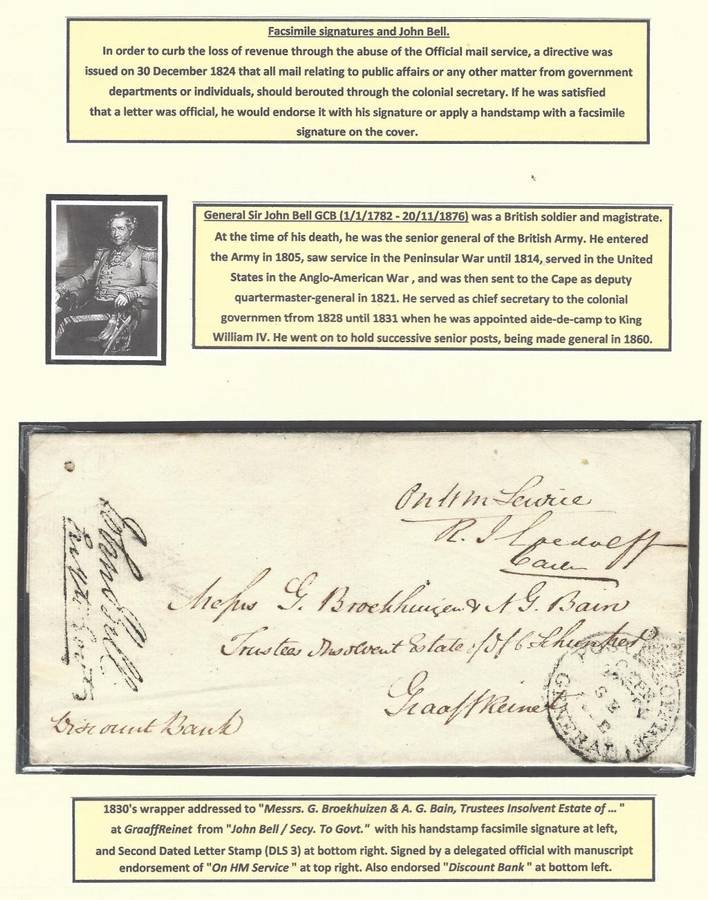 Facsimile signatures and John Bell.
In order to curb the loss of revenue through the abuse of the Official mail service, a directive was
issued on 30 December 1824 that all mail relating to public affairs or any other matter from government
departments or individuals, should berouted through the colonial secretary. If he was satisfied
that a letter was official, he would endorse it with his signature or apply a handstamp with a facsimile
signature on the cover.
General Sir John Bell GCB (1/1/1782 - 20/11/1876) was a British soldier and magistrate.
At the time of his death, he was the senior general of the British Army. He entered
the Army in 1805, saw service in the Peninsular War until 1814, served in the United
States in the Anglo-American War , and was then sent to the Cape as deputy
quartermaster-general in 1821. He served as chief secretary to the colonial
governmen tfrom 1828 until 1831 when he was appointed aide-de-camp to King
William IV. He went on to hold successive senior posts, being made general in 1860.
On HM Service
R. J.
John Bell
Messrs G. Broekhuizen & A G. Bain
Trustees Insolvent Estate of
Graaff Reinet
GENERAL
Discount Bank
1830's wrapper addressed to "Messrs. G. Broekhuizen & A. G. Bain, Trustees Insolvent Estate of ... "
at GraaffReinet from "John Bell / Secy. To Govt." with his handstamp facsimile signature at left,
and Second Dated Letter Stamp (DLS 3) at bottom right. Signed by a delegated official with manuscript
endorsement of "On HM Service " at top right. Also endorsed "Discount Bank " at bottom left.